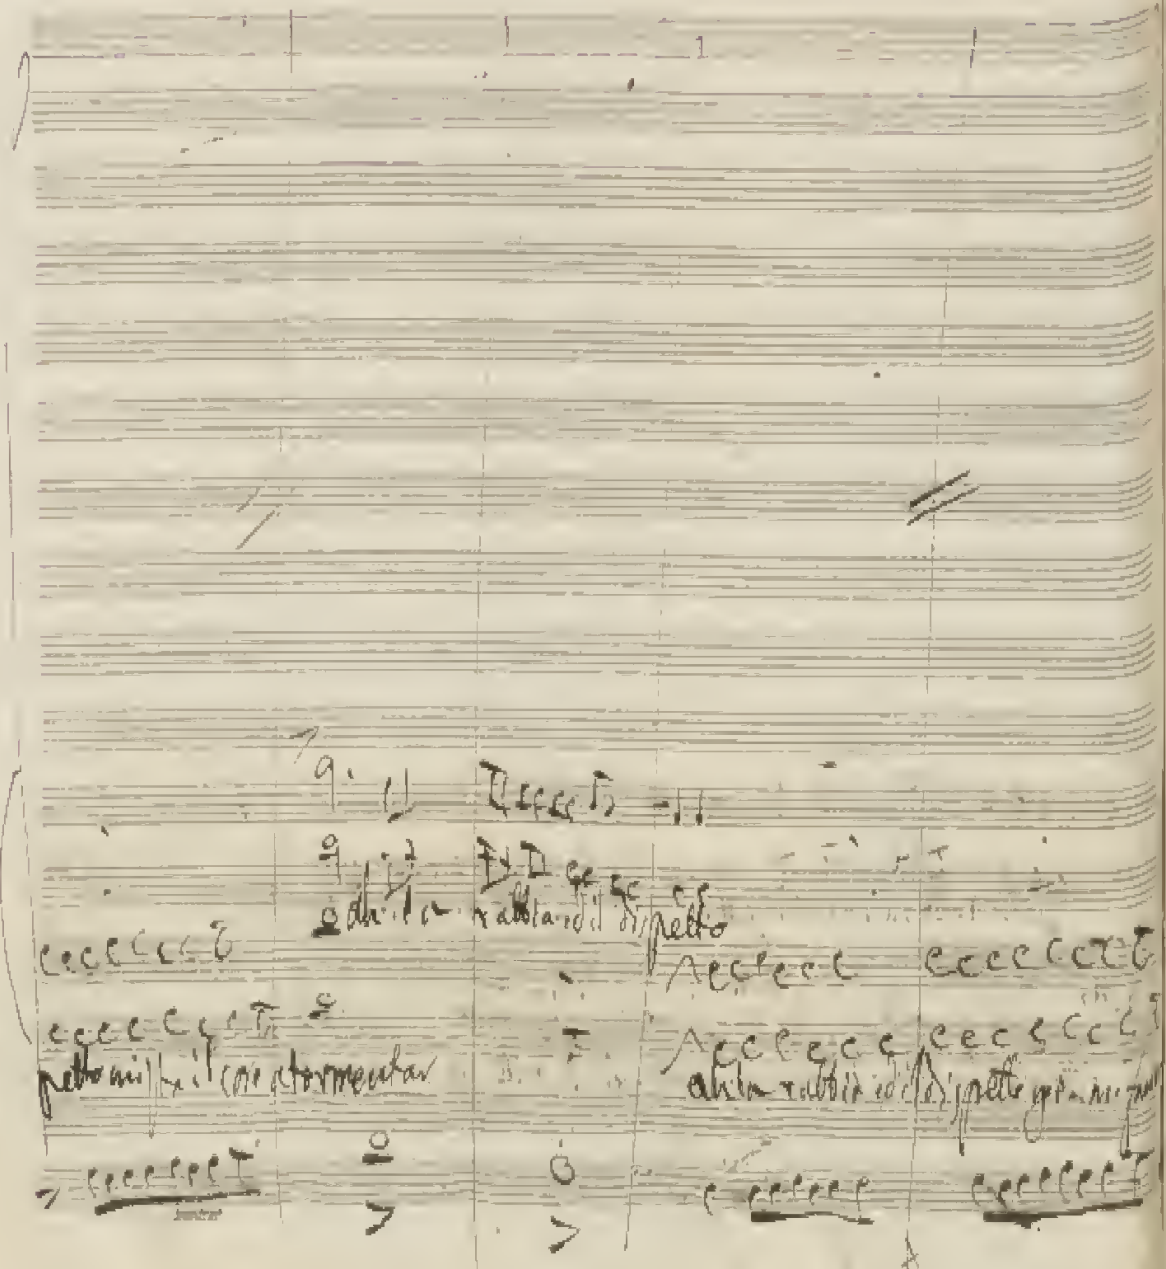 ah la rabbia ed il dispetto
petto mi fa il core a tormentar
ah la rabbia ed il dispetto già mi